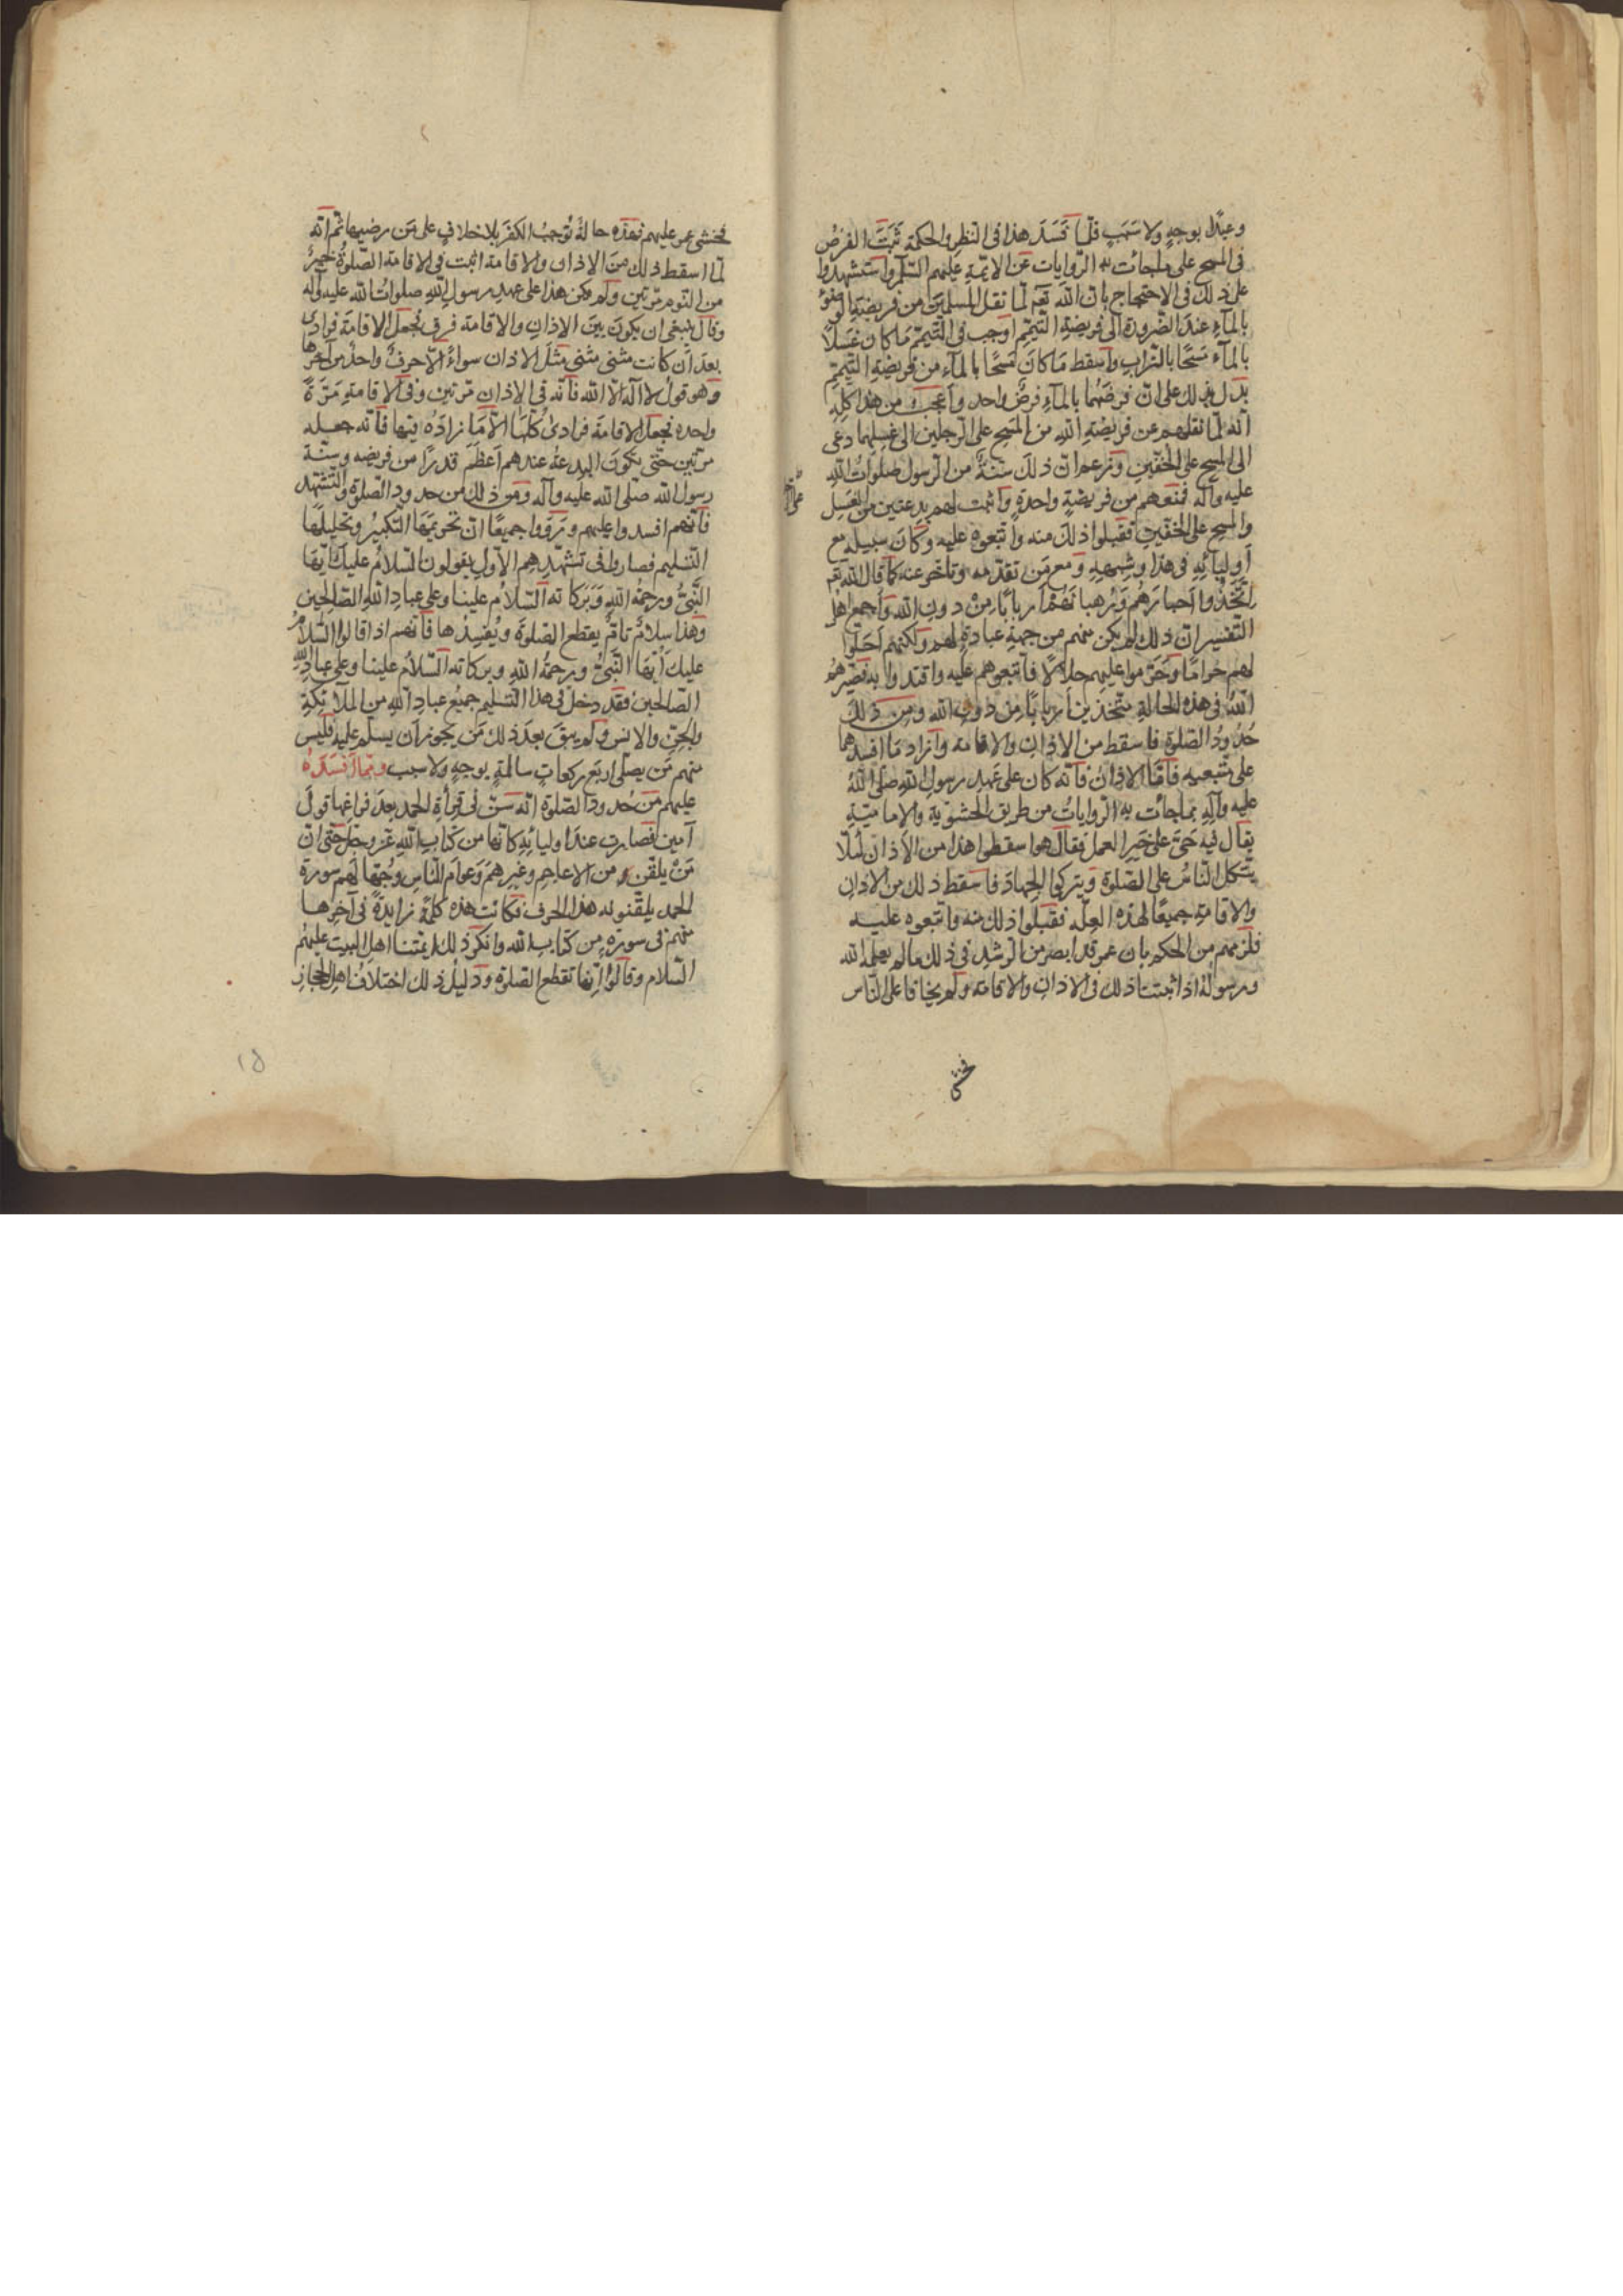 وعبدًا بوجهٍ ولا سَبَبٍ فلمّا فَسَدَ هذا فى النظر والحكمة ثَبَتَ الفرضُ
فى المسح على ماجائت به الرّوايات عَن الائمّةِ عليهم السّلم واستشهدوا
على ذلك فى الاحتجاج بانّ الله تعَم لمّا نقل المسلمين من فريضةِ الوضوءِ
بالمآءِ عندَ الضّرورة الى فريضةِ التّيمّم اوجب فى التّيمّم مَا كان غَسلًا
بالمآء مَسحًا بالتراب واسقط مَا كانَ مَسحًا بالمآء من فريضة التيمّم
يدل بذلك على انّ فرضَهُما بالمآءِ فرضٌ واحد واَعجبُ من هذا كلّه
انّه لمّا نقلهم عن فريضةِ اللهِ من المَسح على الرّجلين الى غسلِهما دعى
الى المسح على الخفّين وَزعم انّ ذلك سنَّةٌ من الرّسول صلواتُ اللهِ
عليه وآله فمنعهم من فريضةٍ واحدةٍ واثبت لهم بدعتين من الغسل
والمسح على الخفّين فقبلوا ذلكَ منه واتّبعوه عليه وكانَ سبيله مع
اَوليآئِهِ فى هذا وشبههِ ومع مَن تقدّمه وتاخّر عنه كما قال الله تعَم
اتَّخَذُوا اَحبارَهُم وَرُهبانَهُمْ اَربابًا مِنْ دونِ الله واَجمع اهلُ
التّفسير انّ ذلك لم يكن منهم من جهةِ عبادةٍ لهم ولكنّهم اَحَلّوا
لهم حرامًا وحَرّموا عليهم حلالًا فاتّبعوهم عليه واقتدوا به فصيّرهم
اللهُ فى هذه الحالةِ متّخذين اَربابًا مِن دونِ الله ومن ذلك
حُدُودُ الصلوة فاسقط من الاذانِ والاقامة وازاد مَا افسدهما
على متّبعيه فامّا الاذانُ فانّه كان على عَهدِ رسول الله صلّى اللهُ
عليه وآلِهِ بماجائت به الرّواياتُ من طريق الحشويّة والاماميّةِ
يقال فيه حَىَّ على خَير العمل فقال هو اسقطوا هذا من الاَذان لئلّا
يتّكل النّاسُ على الصّلوةِ ويتركوا الجهادَ فاسقط ذلك من الاذانِ
والاقامةِ جميعًا لهذه العلّة فقبلوا ذلك منه واتبعوه عليه
فلزمهم من الحكم بان عمر قد ابصر من الرّشد فى ذلك مالم يعلمه الله
ورسولُهُ اذ اثبتا ذلك فى الاذانِ والاقامة ولم يخافا على النّاس
فخشى
فخشى عمر عليهم فهذه حالةٌ تُوجبُ الكفرَ بلا خلافٍ على مَن رضيها ثمّ انّه
لمّا اسقط ذلك منَ الاذان والاقامة اثبت فى الاقامة الصّلوةُ خيرٌ
من النوم مرّتين ولم يكن هذا على عهدِ رسول اللهِ صلواتُ الله عليه وآله
وقال ينبغى ان يكونَ بينَ الاذانِ والاقامة فرق نجعل الاقامَة فرادى
بعدَ اَن كانت مثنى مثنى مثلَ الاذان سواءً الاّ حرفٌ واحدٌ من آخرها
وهو قولُ لا اله الاّ الله فانّه فى الاذانِ مرّتين وفى الاقامةِ مَرّةً
واحده فجعل الاقامَة فرادىٰ كلَّها الاّ مَا زادَهُ فيها فانّه جعله
مرّتين حتّى تكونَ البدعَةُ عندهم اَعظَمَ قدرًا من فريضه وسنّة
رسول الله صلّى الله عليه وآله ومن ذلك من حدود الصلوة والتّشهّد
فانّهم افسدوا عليهم ورَوَوا جميعًا انّ تحريمَها التّكبيرُ وتحليلها
التّسليم فصاروا فى تشهّدِهم الاَوّلِ يقولون السّلامُ عليك ايّها
النَّبىُّ ورحمةُ اللهِ وَبَرَكاته السَّلاُم علينا وعلى عبادِ اللهِ الصّالحين
وهذا سلامٌ تامٌّ يقطع الصّلوةَ ويُفسِدُها فانّهم اذا قالوا السَّلامُ
عليك اَيّهَا النَّبىُّ ورحمةُ اللهِ وبركاته السّلامُ علينا وعلى عبادِ اللهِ
الصّالحين فقد دخلَ فى هذا التّسليم جميعُ عبادِ اللهِ من الملآئكةِ
والجنّ والانس ولم يبقَ بعدَ ذلك مَن يجوز اَن يسلّم عليه فليس
منهم مَن يصلّى اربَع ركعاتٍ سالمةٍ بوجهٍ ولا سبب وَممّا اَفسَدَهُ
عليهم مَن حُدود الصّلوة انّه سَنّ فى قرأةِ الحمد بعدَ فراغها قولَ
آمين فصارت عند اوليائِهِ كانّها من كتاب اللهِ عزّ وجلّ حتّى انّ
مَنْ يلقّن من الاعاجمِ وغيرهمْ وَعوامّ النّاسِ وجُهّالِهم سورة
الحمد يلقّنونه هذا الحرف فكانت هذه كلمةً زايدةً فى آخِرها
منهم فى سورةٍ من كتاب الله وانكر ذلك ايمّتنا اهل البيت عليهم
السّلام وقالوا اِنّها تقطع الصلوة ودليلُ ذلك اختلافُ اهل الحجاز
١٥